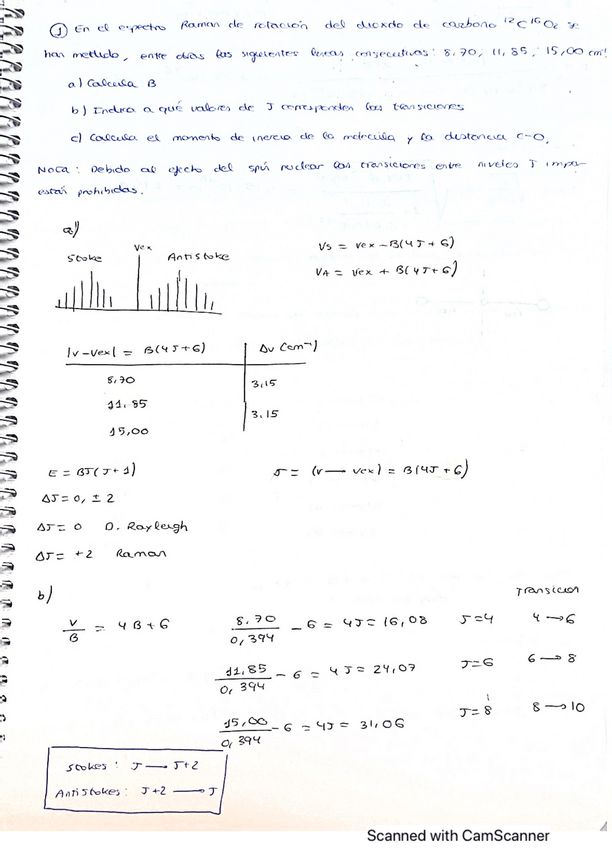 ① En el espectro Raman de rotación del dioxdo de carbono ¹²C¹⁶O₂ se
han metido, entre otras las siguientes lineas consecutivas: 8,70, 11,85, 15,00 cm⁻¹
a) Calcula B
b) Indica a qué valores de J corresponden las transiciones
c) Calcula el momento de inercia de la molecula y la distancia C-O.
Nota: Debido al efecto del spin nuclear las transiciones entre niveles J impa-
estan prohibidas.
a)
Stoke Vex Antistoke
Vs = Vex - B(4J + 6)
VA = Vex + B(4J + 6)
|v - Vex| = B(4J + 6) Δν (cm⁻¹)
8,70
3,15
11,85
3.15
15,00
E = BJ(J + 1) J = (v — Vex) = B(4J + 6)
ΔJ = 0, ± 2
ΔJ = 0 D. Rayleigh
ΔJ = +2 Raman
b) Transicion
V/B = 4B + 6 8.70/0,394 - 6 = 4J = 16,08 J = 4 4 → 6
11,85/0,394 - 6 = 4J = 24,07 J = 6 6 → 8
15,00/0,394 - 6 = 4J = 31,06 J = 8 8 → 10
Stokes: J → J+2
Antistokes: J+2 → J
Scanned with CamScanner